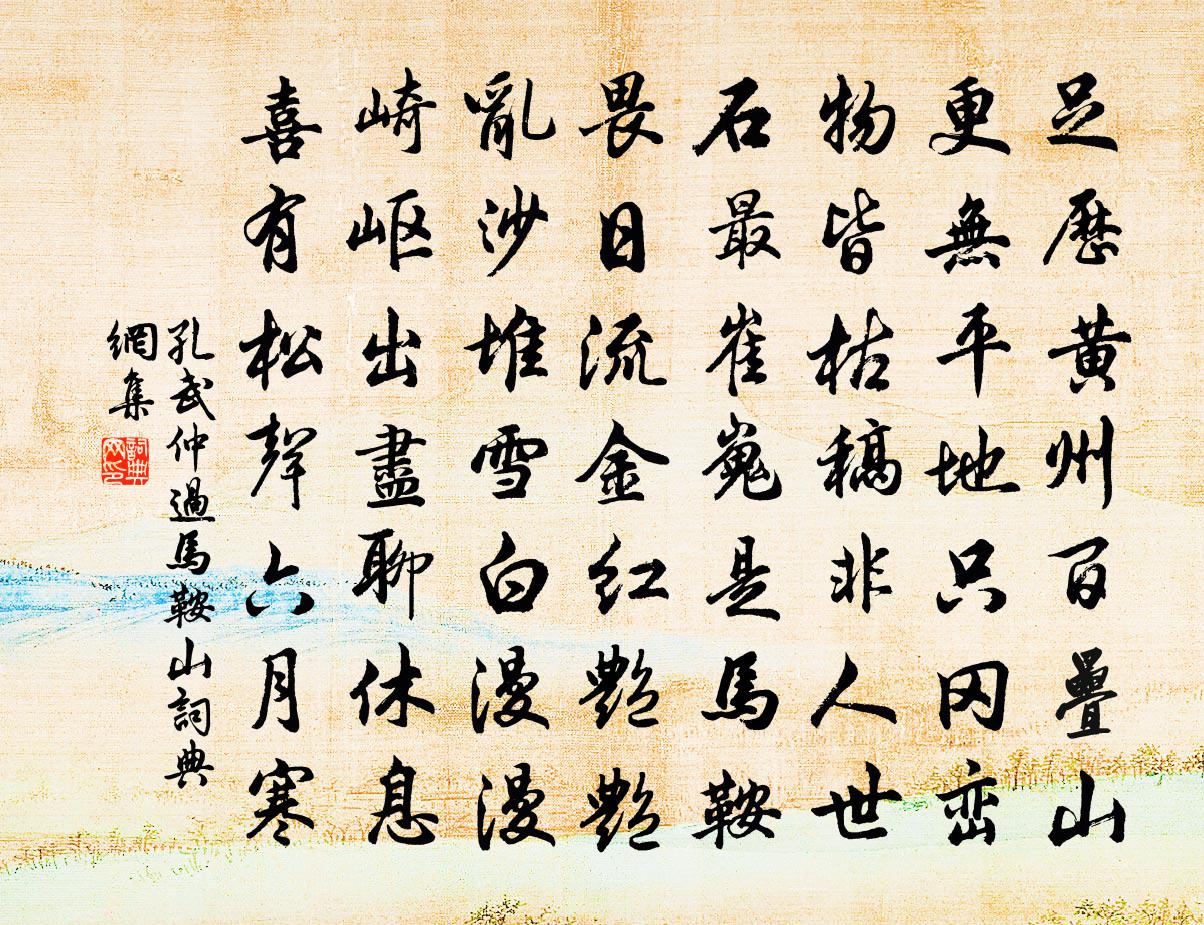 足歷黃州百疊山
更無平地只冈巒
物皆枯稿非人世
石最崔嵬是馬鞍
畏日流金红艷艷
亂沙堆雪白漫漫
崎岖出盡聊休息
喜有松聲六月寒
孔武仲過馬鞍山詞典
網集
詞典
网印